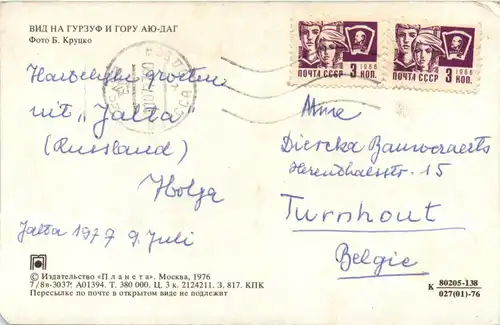 ВИД НА ГУРЗУФ И ГОРУ АЮ-ДАГ
Фото Б. Круцко
ПОЧТА СССР 1966 3 КОП.
ПОЧТА СССР 1966 3 КОП.
Hartelijke groeten
uit "Jalta"
(Russland)
Holga
Jalta 1977 9 Juli
Aan
Diercka Bauweraerts
Herenthalsstr. 15
Turnhout
Belgie
© Издательство «Планета». Москва, 1976
7/8в-3037! А01394. Т. 380 000. Ц. 3 к. 2124211. З. 817. КПК
Пересылке по почте в открытом виде не подлежит
К 80205-138
027(01)-76